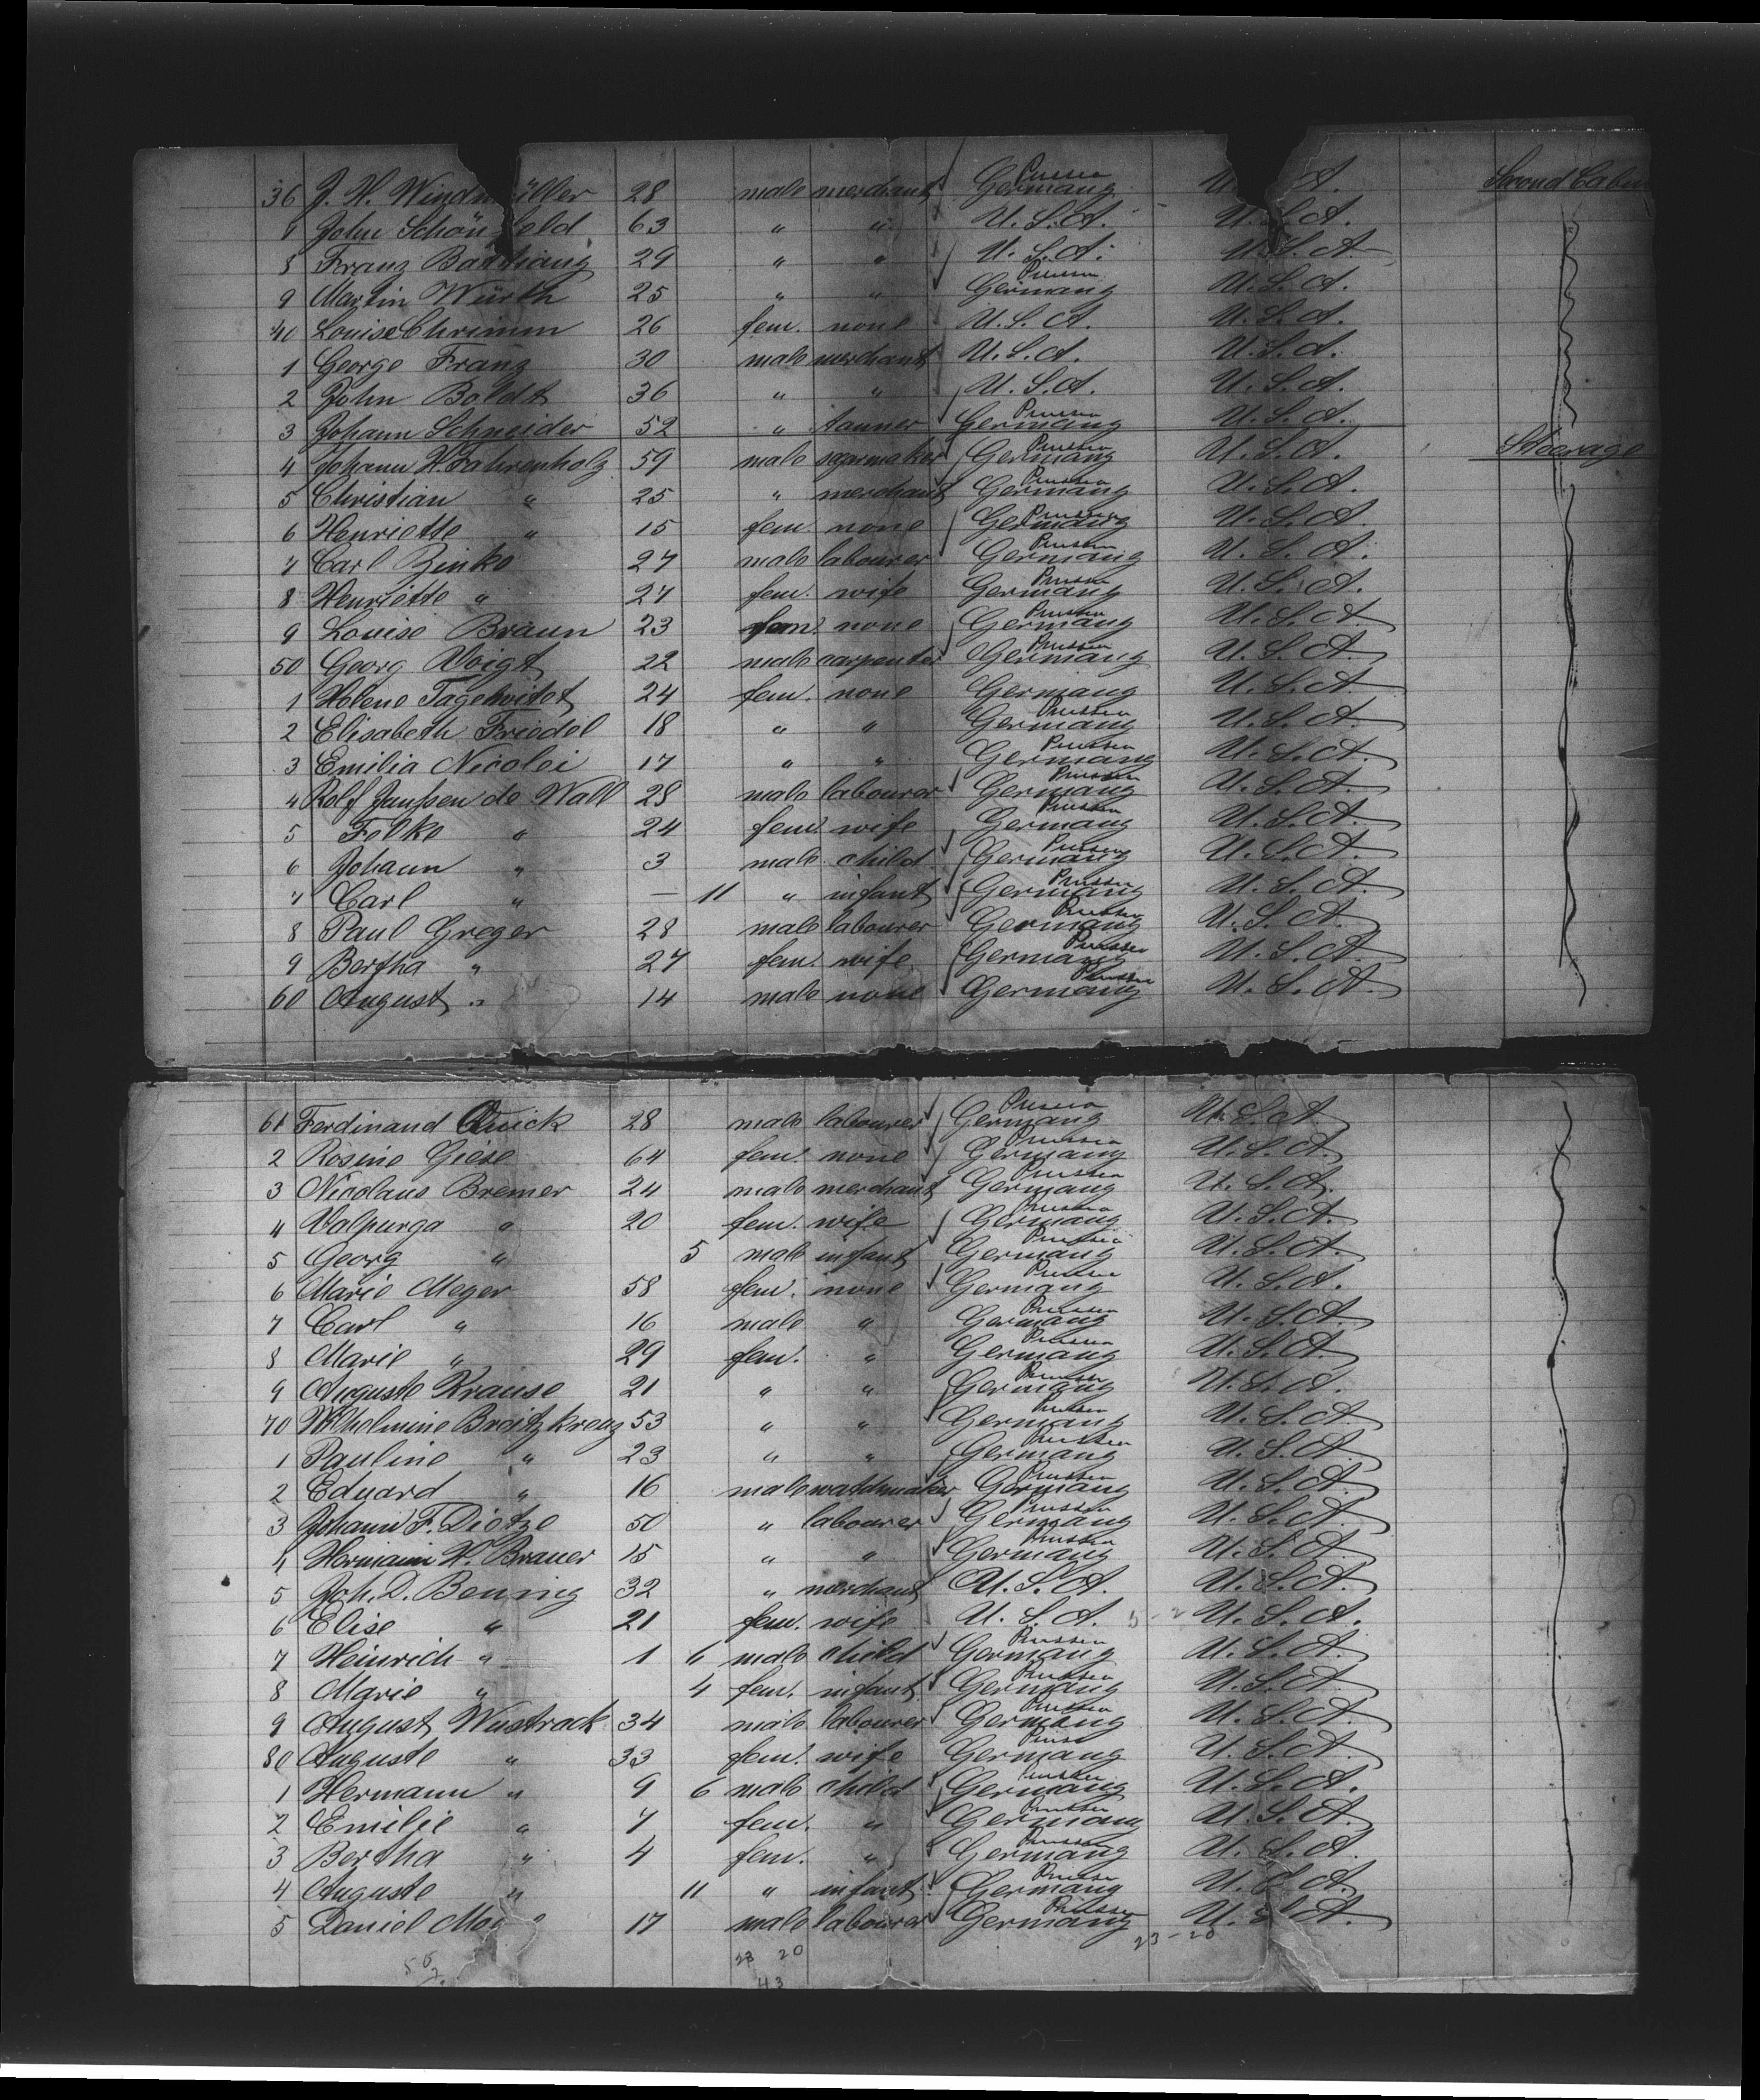 36 J. H. Windmüller 28 male merchant Prussia Germany U. A. Second Cabin
John Schönfeld 63 " " U.S.A. U.S.A.
8 Franz 29 " " U.S.A. U.S.A.
9 Martin Würth 25 " " Prussia Germany U.S.A.
40 Louise 26 fem. none U.S.A. U.S.A.
1 George Franz 30 male merchant U.S.A. U.S.A.
2 John Boldt 36 " " U.S.A. U.S.A.
3 Johann Schneider 52 " tanner Prussia Germany U.S.A.
4 Johann H. Fahrenholz 59 male segarmaker Prussia Germany U.S.A. Steerage
5 Christian " 25 " merchant Prussia Germany U.S.A.
6 Henriette " 15 fem. none Prussia Germany U.S.A.
7 Carl Zinke 27 male labourer Prussia Germany U.S.A.
8 Henriette " 27 fem. wife Prussia Germany U.S.A.
9 Louise Braun 23 fem. none Prussia Germany U.S.A.
50 Georg Voigt 22 male carpenter Prussia Germany U.S.A.
1 Helene 24 fem. none Germany U.S.A.
2 Elisabeth Friedel 18 " " Prussia Germany U.S.A.
3 Emilia Nicolei 17 " " Prussia Germany U.S.A.
4 Rolf Janssen de Wall 28 male labourer Prussia Germany U.S.A.
5 Folke " 24 fem. wife Prussia Germany U.S.A.
6 Johann " 3 male child Prussia Germany U.S.A.
7 Carl " — 11 " infant Prussia Germany U.S.A.
8 Paul Greger 28 male labourer Prussia Germany U.S.A.
9 Bertha " 27 fem. wife Prussia Germany U.S.A.
60 August " 14 male none Prussia Germany U.S.A.
61 Ferdinand Quick 28 male labourer Prussia Germany U.S.A.
2 Rosine Giese 64 fem. none Prussia Germany U.S.A.
3 Nicolaus Bremer 24 male merchant Prussia Germany U.S.A.
4 Walpurga " 20 fem. wife Prussia Germany U.S.A.
5 Georg " 5 male infant Prussia Germany U.S.A.
6 Marie Meyer 58 fem. none Prussia Germany U.S.A.
7 Carl " 16 male " Prussia Germany U.S.A.
8 Marie " 29 fem. " Prussia Germany U.S.A.
9 Auguste Krause 21 " " Prussia Germany U.S.A.
70 Wilhelmine Breitzkreuz 53 " " Prussia Germany U.S.A.
1 Pauline " 23 " " Prussia Germany U.S.A.
2 Eduard " 16 male watchmaker Prussia Germany U.S.A.
3 Johann F. Dietze 50 " labourer Prussia Germany U.S.A.
4 Hermann H. Brauer 15 " " Prussia Germany U.S.A.
5 Joh. D. Bening 32 " merchant U.S.A. U.S.A.
6 Elise " 21 fem. wife U.S.A. U.S.A.
7 Heinrich " 1 6 male child Prussia Germany U.S.A.
8 Marie " 4 fem. infant Prussia Germany U.S.A.
9 August Wustrack 34 male labourer Prussia Germany U.S.A.
80 Auguste " 33 fem. wife Pruss Germany U.S.A.
1 Hermann " 9 6 male child Prussia Germany U.S.A.
2 Emilie " 7 fem. " Prussia Germany U.S.A.
3 Bertha " 4 fem. " Prussia Germany U.S.A.
4 Auguste " 11 " infant Prussia Germany U.S.A.
5 Daniel 17 male labourer Prussia Germany U.S.A.
23 20 23-20
43